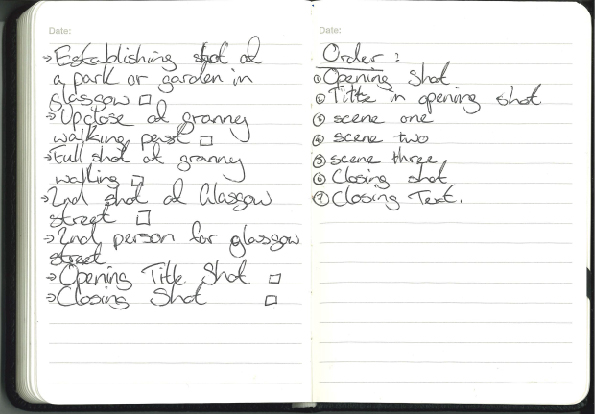 Date:
→ Establishing shot of
a park or garden in
glasgow □
→ Upclose of granny
walking past □
→ Full shot of granny
walking □
→ 2nd shot of Glasgow
street □
→ 2nd person for glasgow
street
→ Opening Title Shot □
→ Closing Shot □
Date:
Order:
① Opening shot
② Title in opening shot
③ scene one
④ scene two
⑤ scene three
⑥ Closing shot
⑦ Closing Text.